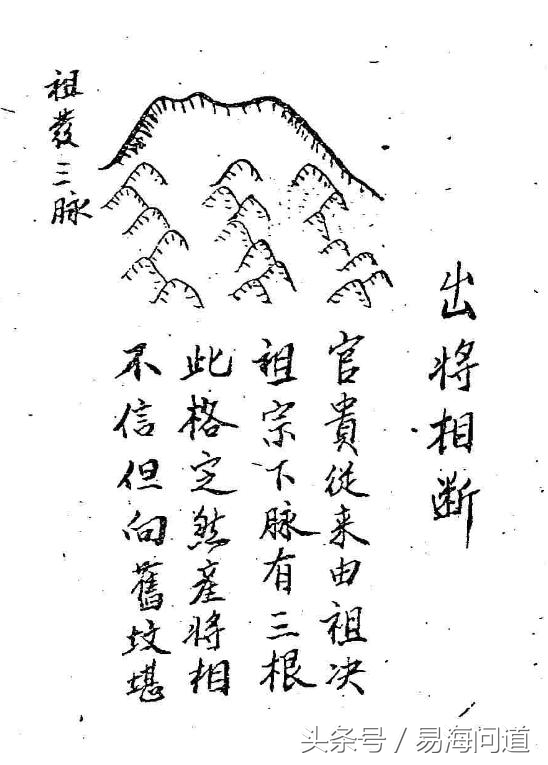 出将相断
官貴従来由祖决
祖宗下脉有三根
此格定然產将相
不信但向舊坟堪
祖發三脉
头条号 / 易海问道